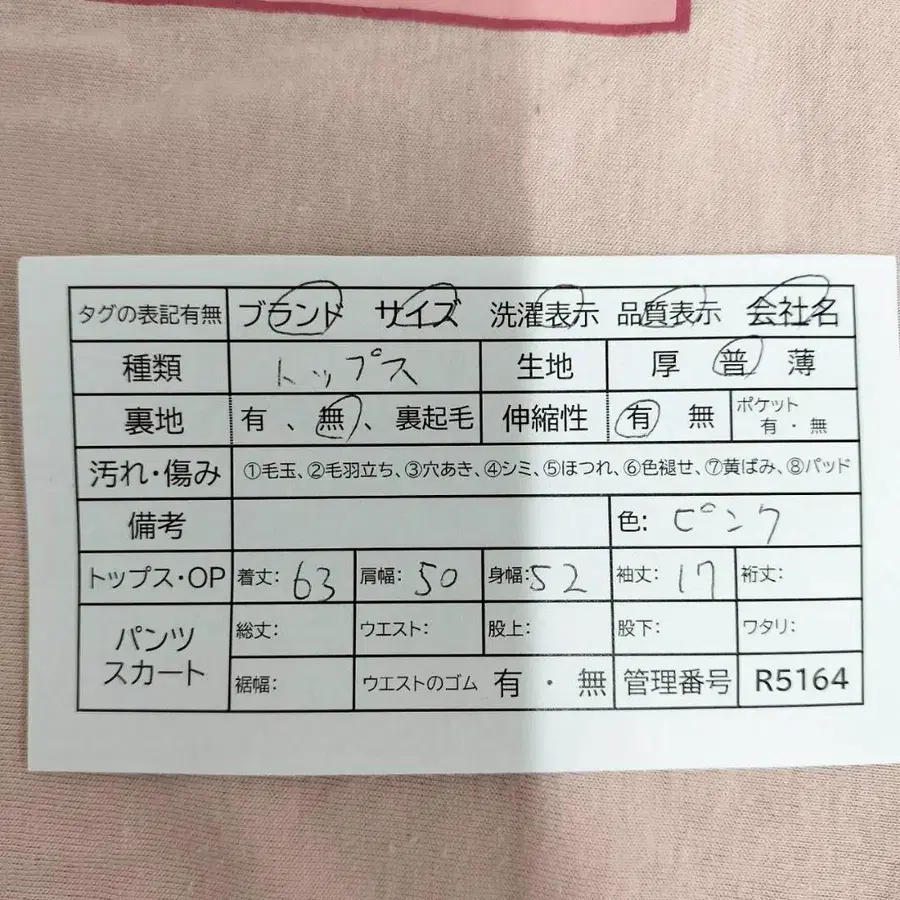 タグの表記有無 ブランド サイズ 洗濯表示 品質表示 会社名
種類 トップス 生地 厚 普 薄
裏地 有 、無 、裏起毛 伸縮性 有 無 ポケット 有・無
汚れ・傷み ①毛玉、②毛羽立ち、③穴あき、④シミ、⑤ほつれ、⑥色褪せ、⑦黄ばみ、⑧パッド
備考 色: ピンク
トップス・OP 着丈: 63 肩幅: 50 身幅: 52 袖丈: 17 裄丈:
パンツ スカート 総丈: ウエスト: 股上: 股下: ワタリ:
裾幅: ウエストのゴム 有 ・ 無 管理番号 R5164